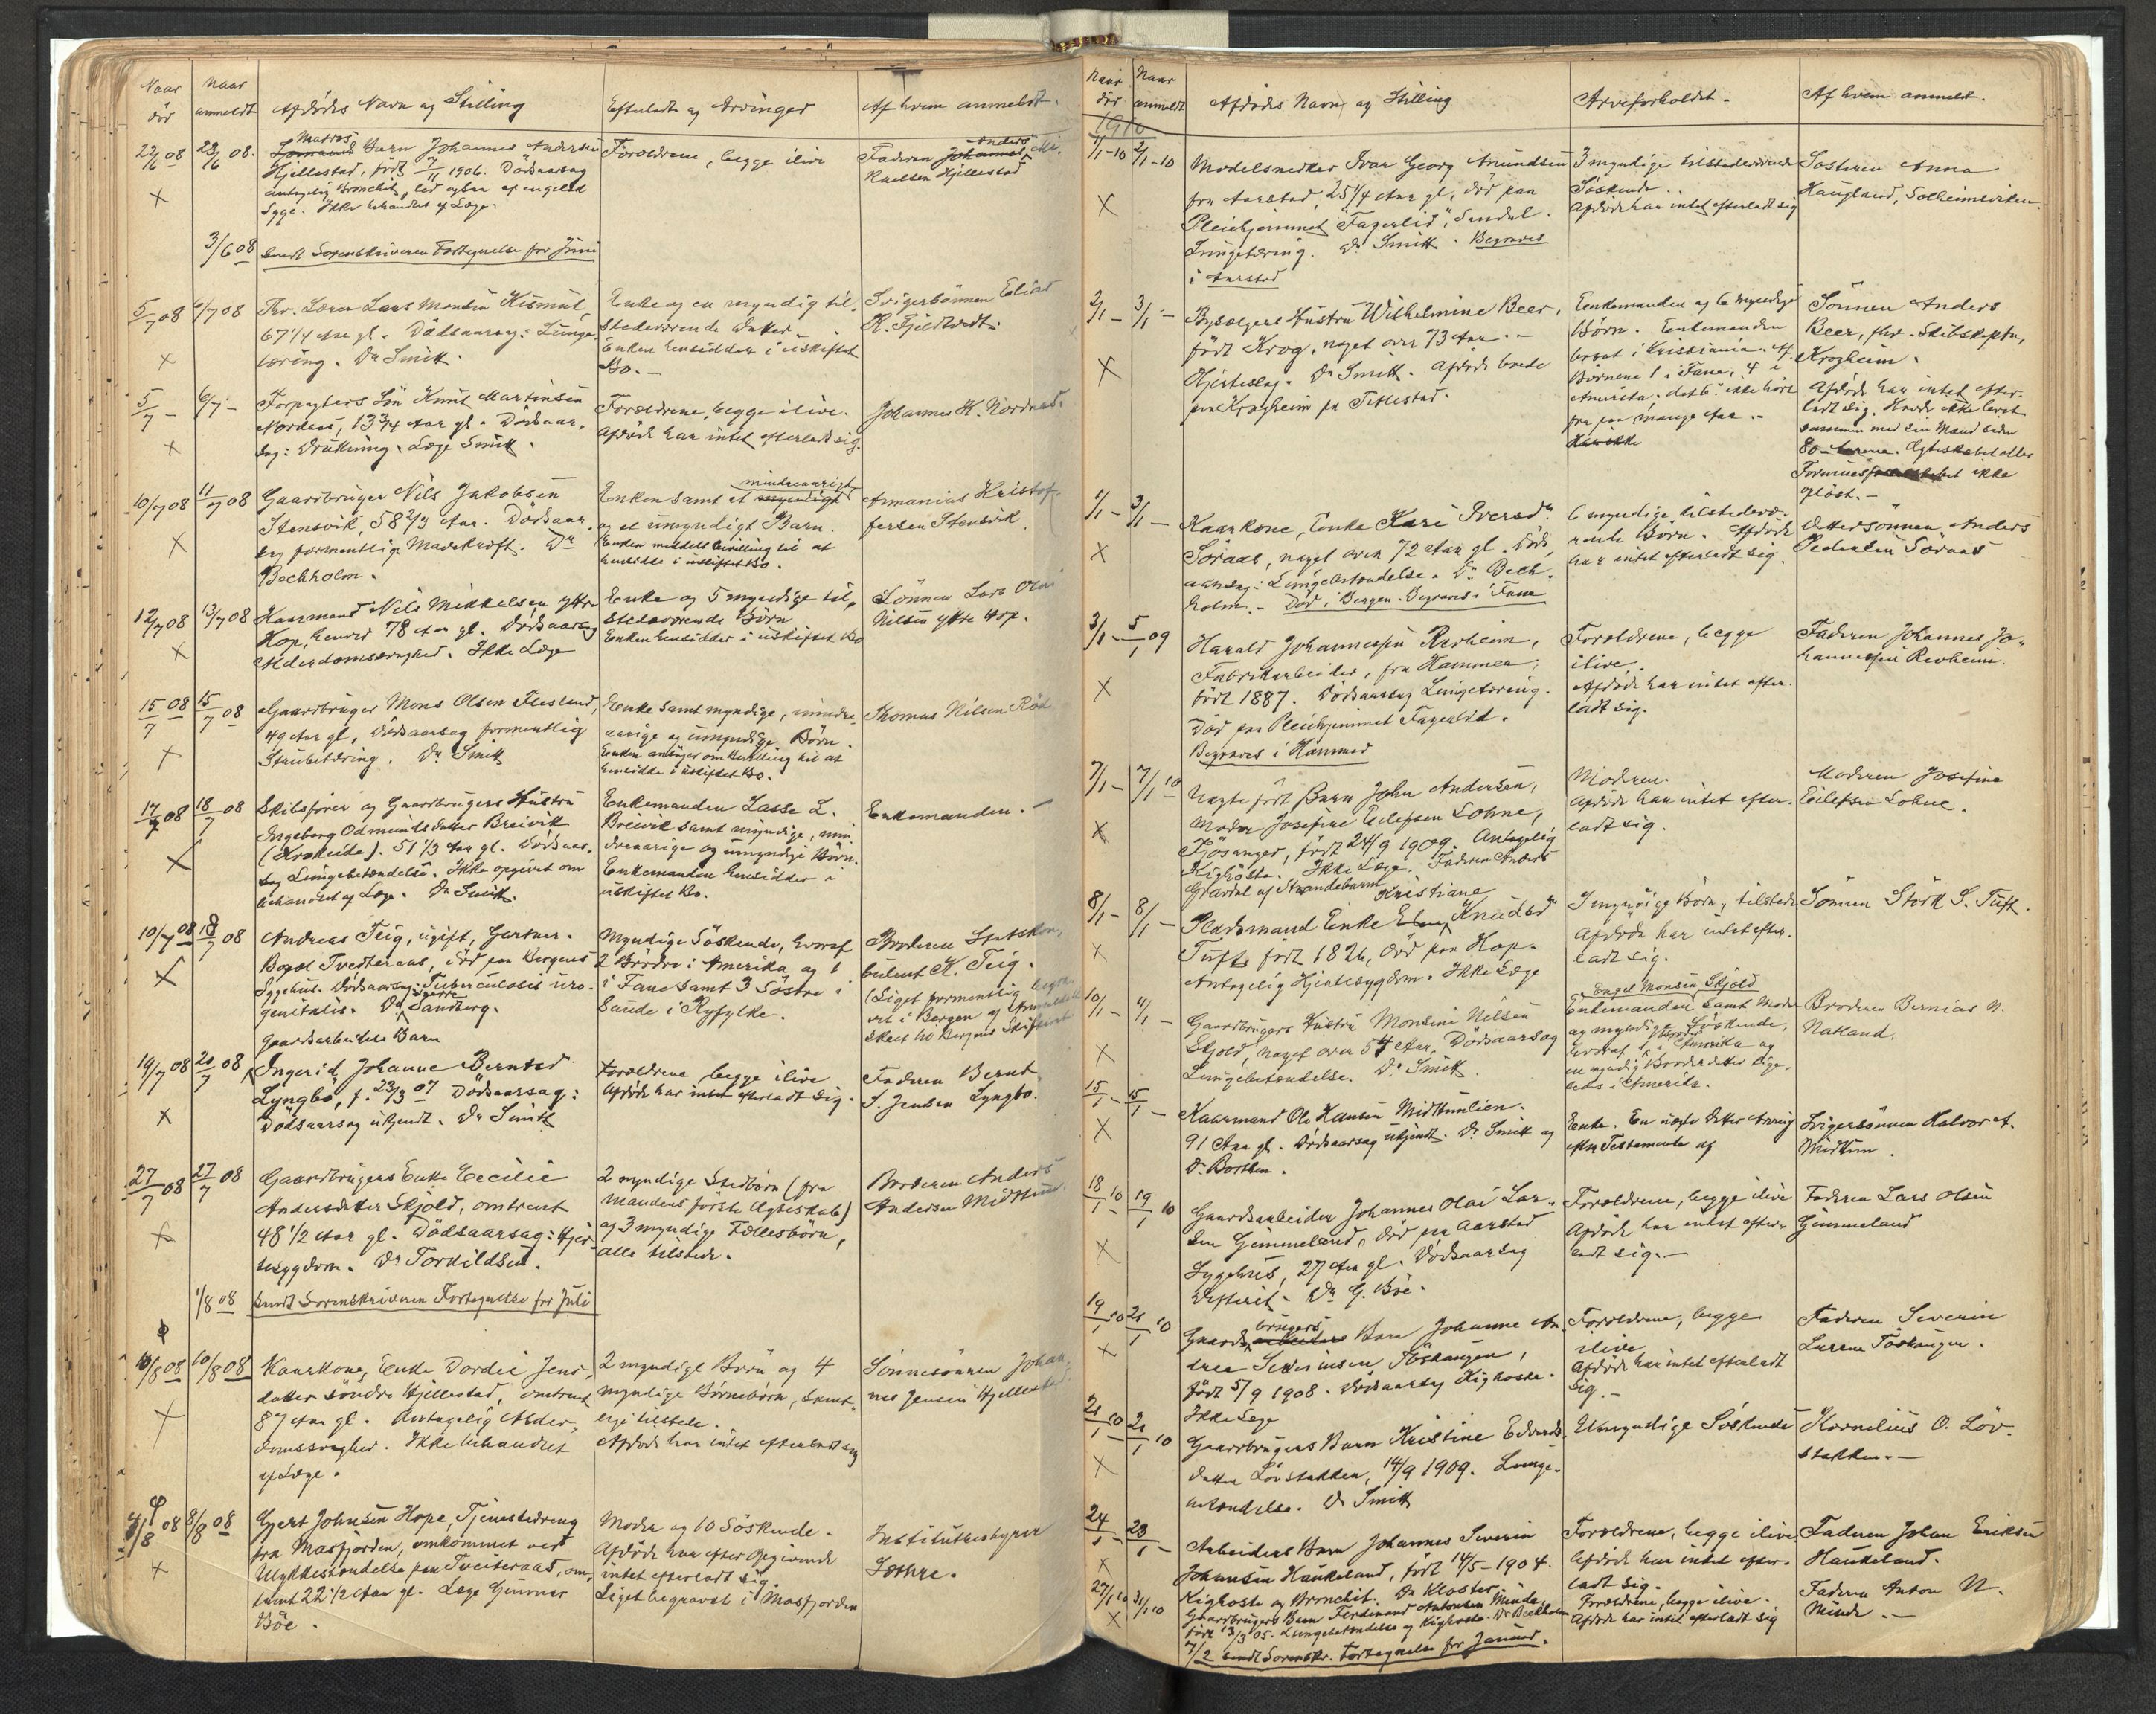 Naar død
Naar anmeldt
Afdødes Navn og Stilling
Efterladte og Arvinger
Af hvem anmeldt.
22/6 08
23/6 08.
Matros
Barn Johannes Andersen
Hjellestad, født 7/11 1906. Dødsaarsag
antagelig Bronchit, led ogsaa af engelsk
Syge. Ikke behandlet af Læge.
Forældrene, begge ilive
Anders
Faderen Johannes
Hjellestad
3/6 08
Sendt Sorenskriveren Fortegnelse for Juni
5/7 08
6/7 08
Fhv. Lærer Lars Monsen Kismul,
67 1/4 Aar gl. Dødsaarsag: Lunge-
tæring. Dr Smitt.
Enke og en myndig til-
stedeværende Datter.
Enken hensidder i uskiftet
Bo. -
Svigersønnen Elias
R. Fjeldtvedt.
5/7 -
6/7 -
Forpagters Søn Knut Martinsen
Nordaas, 13 3/4 Aar gl. Dødsaar-
sag: Drukning. Læge Smitt.
Forældrene, begge ilive.
Afdøde har intet efterladt sig.
Johannes H. Nordaas.
10/7 08
11/7 08
Gaardbruger Nils Jakobsen
Stensvik, 58 2/3 Aar. Dødsaar-
sag formentlig Mavekræft. Dr
Bechholm.
mindreaarigt
Enken samt et myndigt
og et umyndigt Barn.
Enken meddelt bevilling til at
hensidde i uskiftet Bo.
Annanias Kristof-
fersen Stensvik.
12/7 08
13/7 08
Kaarmand Nils Mikkelsen Ytre
Hop, henved 78 Aar gl. Dødsaarsag
Alderdomssvaghed. Ikke Læge
Enke og 5 myndige til-
stedeværende Børn
Enken hensidder i uskiftet Bo
Sønnen Lars Olai
Nilsen Ytre Hop.
15/7 08
15/7 08
Gaardbruger Mons Olsen Flesland,
49 Aar gl, Dødsaarsag formentlig
Strubetæring. Dr Smitt
Enke samt myndige, mindre-
aarige og umyndige Børn.
Enken ansøger om Bevilling til at
hensidde i uskiftet Bo.
Thomas Nilsen
17/7 08
18/7 08
Skibsfører og Gaardbrugers Hustru
Ingeborg Odmundsdatter Breivik
(Krokeide). 51 1/3 Aar gl. Dødsaar-
sag Lungebetændelse. Ikke opgivet om
behandlet af Læge. Dr Smitt.
Enkemanden Lasse L.
Breivik samt myndige, min-
dreaarige og umyndige Børn.
Enkemanden hensidder i
uskiftet Bo.
Enkemanden. -
10/7 08
18/7 08
Andreas Teig, ugift, Gartner.
Bopæl Tvedteraas, død paa Bergens
Sygehus. Dødsaarsag: Tuberculosis uro-
genitalis. Dr Sandberg.
Myndige Søskende, hvoraf
2 Brødre i Amerika og 1
i Fane samt 3 Søstre i
Sande i Ryfylke.
Broderen Statskon-
sulent K. Teig.
(Liget formentlig
vet i Bergen og
skeet til Bergens Skifteret
Gaardsarbeiders Barn
19/7 08
20/7 08
Ingerid Johanne Berntsd
Lyngbø, f. 23/3 07 Dødsaarsag:
Dødsaarsag ukjendt. Dr Smitt
Forældrene begge ilive
Afdøde har intet efterladt sig.
Faderen Bernt
S. Jensen Lyngbø.
27/7 08
27/7 08
Gaardbrugers Enke Cecilie
Andersdatter Skjold, omtrent
48 1/2 Aar gl. Dødsaarsag: Hjer-
tesygdom. Dr Torkildsen.
2 myndige Stedbørn (fra
Mandens første Ægteskab)
og 3 myndige Fællesbørn,
alle tilstede.
Broderen Anders
Andersen Midttun.
1/8 08
Sendt Sorenskriveren Fortegnelse for Juli
10/8 08
10/8 08
Kaarkone, Enke Dordei Jens-
datter søndre Hjellestad, omtrent
87 Aar gl. Antagelig Alder-
domssvaghed. Ikke behandlet
af Læge.
2 myndige Børn og 4
myndige Børnebørn, samt-
lige tilstede.
Afdøde har intet efterladt sig
Sønnesønnen Johan-
nes Jensen Hjellestad
4/8 08
8/8 08
Gjert Johnsen Hope, Tjenestedreng
fra Masfjorden, omkommet ved
Ulykkeshændelse paa Tveiteraas, om-
trent 22 1/2 Aar gl. Læge Gunnar
Bøe.
Moder og 10 Søskende.
Afdøde har efter Opgivende
intet efterladt sig
Liget begravet i Masfjorden
Institutbestyrer
Lothre.
Naar død
Naar anmeldt
Afdødes Navn og Stilling
Arveforholdet.
Af hvem anmeldt.
1910
1/1-10
2/1-10
Modelsnedker Ivar Georg Amundsen
fra Aarstad, 25 1/4 Aar gl, død paa
Pleiehjemmet "Fagerlid", Sandal.
Lungetæring. Dr Smitt. Begraves
i Aarstad
3 myndige tilstedeværende
Søskende.
Afdøde har intet efterladt sig
Søsteren Anna
Haugland, Solheimsviken.
2/1 -
3/1 -
Bysælgers Hustru Wilhelmine Beer,
født Krog, noget over 73 Aar. -
Hjerteslag. Dr Smitt. Afdøde boede
paa Krogheim pr Tittlestad.
Enkemanden og 6 myndige
Børn. Enkemanden
bosat i Kristiania. Af
Børnene 1 i Fane, 4 i
Amerika, det 6. ikke hørt
fra paa mange Aar. -
Har ikke
Sønnen Anders
Beer, fhv. Skibskaptn,
Krogheim.
Afdøde har intet efter-
ladt sig. Havde ikke levet
sammen med sin Mand siden
80-Aarene. Ægteskabet eller
Formuesfællesskabet ikke
opløst. -
1/1 -
3/1 -
Kaarkone, Enke Kari Iversdr
Søraas, noget over 72 Aar gl. Døds-
aarsag: Lungebetændelse. Dr Bech-
holm. - Død i Bergen. Begraves i Fane
6 myndige tilstedevæ-
rende Børn. Afdøde
har intet efterladt sig.
Dattersønnen Anders
Pedersen Søraas
3/1 -
5/1 09
Harald Johannessen Revheim,
Fabrikarbeider, fra Hammer,
født 1887. Dødsaarsag Lungetæring.
Død paa Pleiehjemmet Fagerlid.
Begraves i Hammer
Forældrene, begge
ilive.
Afdøde har intet efter-
ladt sig.
Faderen Johannes Jo-
hannessen Revheim.
7/1 -
7/1 10
Uægte født Barn John Andersen,
Moder Josefine Eilefsen Lohne,
Fjøsanger, født 24/9 1909. Antagelig
Kighoste. Ikke Læge. Faderen Anders
af Strandebarm
Moderen.
Afdøde har intet efter-
ladt sig.
Moderen Josefine
Eilefsen Lohne.
8/1 -
8/1 -
Kristiane
Pladsmand Enke Knudsdr
Tufte født 1826, død paa Hop.
Antagelig Hjertesygdom. Ikke Læge
3 myndige Børn, tilstede
Afdøde har intet efter-
ladt sig.
Sønnen Størk S. Tuft.
10/1 -
4/1 -
Gaardbrugers Hustru Monsine Nilsen
Skjold, noget over 54 Aar, Dødsaarsag
Lungebetændelse. Dr Smitt
Engel Monsen Skjold
Enkemanden samt Moder
og myndige Søskende,
hvoraf 1 i Amerika og
en myndig Broderdatter lige-
ledes i Amerika.
Broderen Bernias N.
Natland.
15/1 -
15/1 -
Kaarmand Ole Hansen Midttunlien.
91 Aar gl. Dødsaarsag ukjendt. Dr Smitt og
Dr Borthen.
Enke. En uægte Datter Arving
efter Testamente af
Svigersønnen Halvor A.
Midttun.
18/1 10
19/1 10
Gaardsarbeider Johannes Olai Lar-
sen Gimmeland, død paa Aarstad
Sygehus, 27 Aar gl. Dødsaarsag
Difterit. Dr G. Bøe.
Forældrene, begge ilive
Afdøde har intet efter-
ladt sig. -
Faderen Lars Olsen
Gimmeland
19/1 10
21/1 10
brugers
Gaardsarbeiders Barn Johanne An-
drea Severinsen Tøskangen,
født 5/9 1908. Dødsaarsag Kighoste.
Ikke Læge
Forældrene, begge
ilive
Afdøde har intet efterladt
sig. -
Faderen Severin
Larsen Tøskangen.
21/1 10
21/1 10
Gaardbrugers Barn Kristine Edvards-
datter Løvstakken, 14/9 1909. Lunge-
betændelse. Dr Smitt
Umyndige Søskende
Kornelius O. Løv-
stakken. -
24/1 -
23/1 -
Arbeiders Barn Johannes Severin
Johansen Haukeland, født 14/5 - 1904.
Kighoste og Bronchit. Dr Kloster.
Forældrene, begge ilive
Afdøde har intet efter-
ladt sig.
Faderen Johan Eriksen
Haukeland.
27/1 10
31/1 10
Gaardbrugers Barn Ferdinand Antonsen Minde,
født 13/3 05. Lungebetændelse og Kighoste. Dr Bechholm
Forældrene, begge ilive.
Afdøde har intet efterladt sig
Faderen Anton N.
Minde. -
7/2 Sendt Sorenskr. Fortegnelse for Januar.